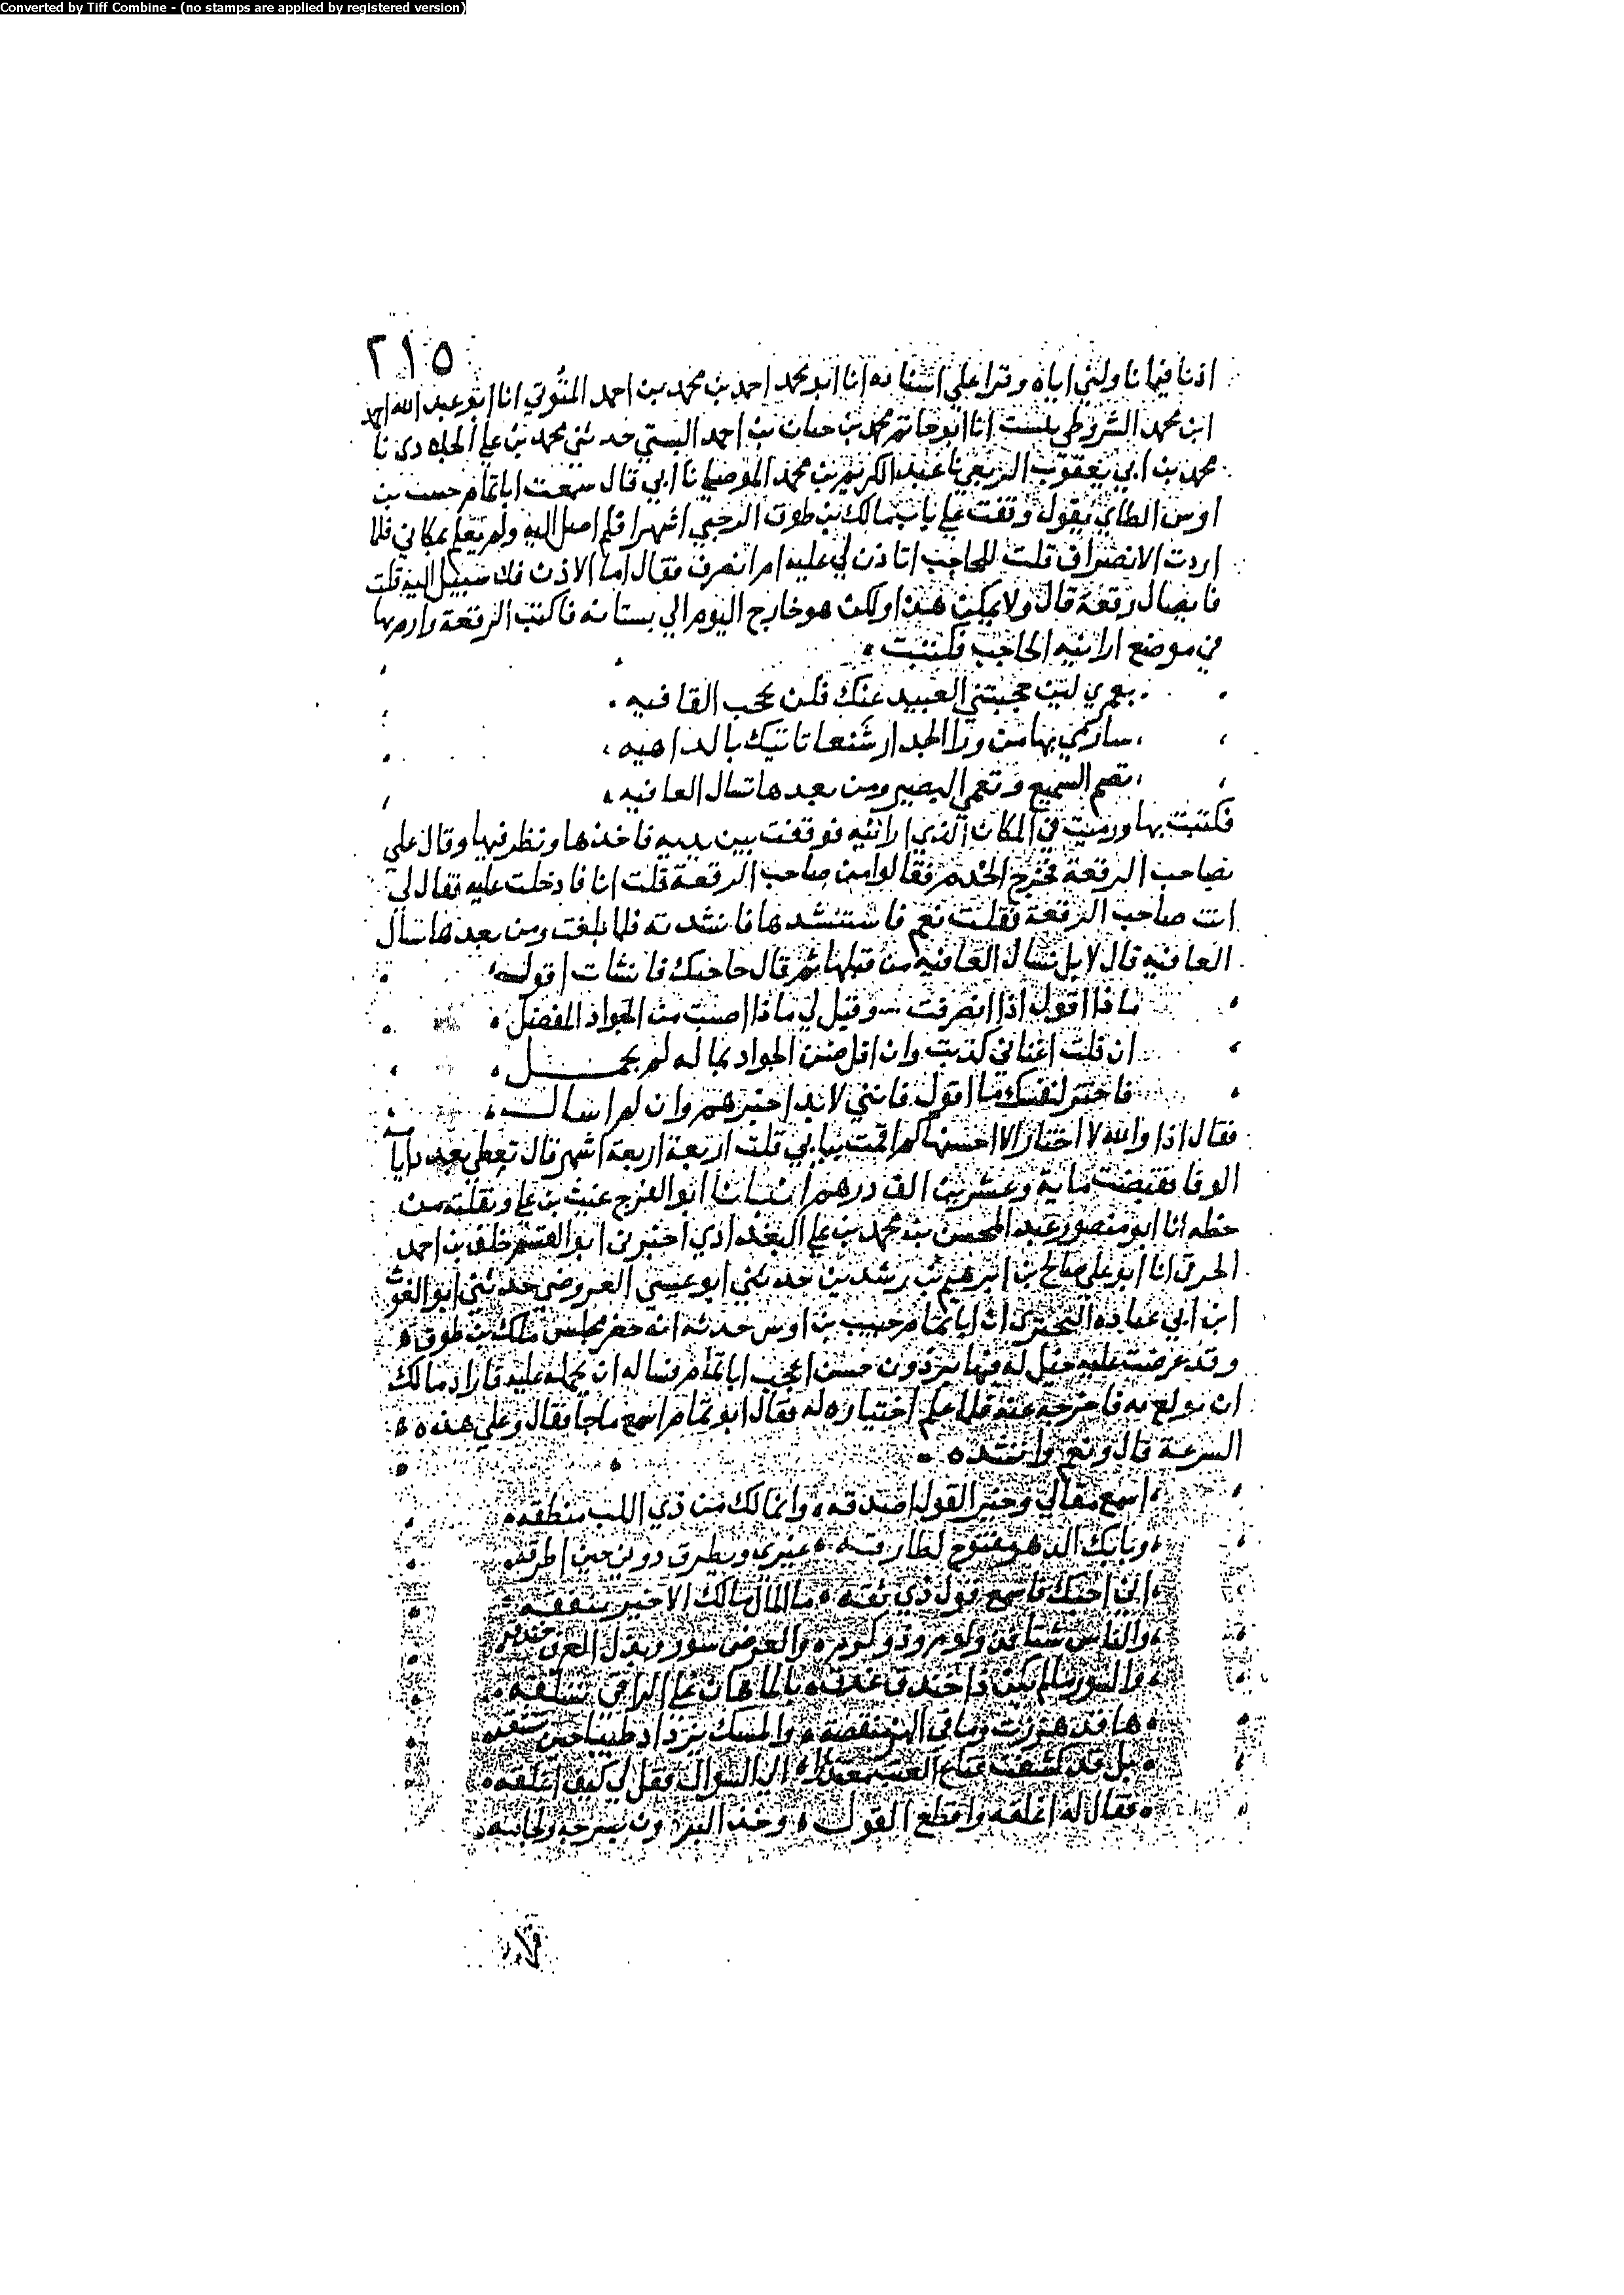 Converted by Tiff Combine - (no stamps are applied by registered version)
٢١٥
اذنا فيما ناولني اياه وقرا علي اسناده انا ابو محمد احمد بن محمد بن احمد انا ابو عبد الله احمد
ابن محمد الشروطي ببست انا ابو حاتم محمد بن حبان بن احمد البستي حدثني محمد بن علي نا
محمد بن ابي يعقوب الربعي نا عبد الكريم بن محمد الموصلي نا ابي قال سمعت اباتمام حبيب بن
اوس الطاي يقول وقفت علي باب مالك بن طوق الرحبي اشهرا فلم اصل اليه ولم يعلم بمكاني فلما
اردت الانصراف قلت للحاجب اتاذن لي عليه ام انصرف فقال اما الاذن فلا سبيل اليه قلت
فايصال رقعة قال ولا يمكن هذا ولكن هو خارج اليوم الي بستانه فاكتب الرقعة وارم بها
في موضع ارانيه الحاجب فكتبت
لعمري لين حجبتني العبيد عنك فلن تحجب القافيه
سارمي بها من ورا الجدار شنعا تاتيك بالداهيه
تصم السميع وتعمي البصير ومن بعدها تسال العافيه
فكتبت بها ورميت في المكان الذي ارانيه فوقفت بين يديه فاخذها ونظر فيها وقال علي
بصاحب الرقعة فخرج الخدم فقالوا من صاحب الرقعة قلت انا فادخلت عليه فقال لي
انت صاحب الرقعة فقلت نعم فاستنشدها فانشدته فلما بلغت ومن بعدها تسال
العافيه قال لا بل نسال العافيه من قبلها ثم قال حاجتك فانشات اقول
ماذا اقول اذا انصرفت وقيل لي ماذا اصبت من الجواد المفضل
ان قلت اغناني كذبت وان اقل ضن الجواد بماله لم يجمل
فاختر لنفسك ما اقول فانني لا بد اخبرهم وان لم اسال
فقال اذا والله لا اختار الا احسنها كم اقمت ببابي قلت اربعة اشهر قال تعطي بعدد ايامه
الوفا فقبضت ماية وعشرين الف درهم انبانا ابو الفرج غيث بن علي ونقلته من
خطه انا ابو منصور عبد المحسن بن محمد بن علي البغدادي اخبرني ابو القسم خلف بن احمد
انا ابو علي صالح بن ابرهيم بن رشدين حدثني ابو عيسي العروضي حدثني ابو الغوث
ابن ابي عباده البحتري ان اباتمام حبيب بن اوس حدثه انه حضر مجلس ملك بن طوق
وقد عرضت عليه خيل له فيها برذون حسن اعجب اباتمام فساله ان يحمله عليه فاراد مالك
ان يولع به فاخرجه عنه فلما علم اختياره له فقال ابو تمام اسمع ماجا فقال وعلي هذه
السرعة قال ونعم وانشده
اسمع مقالي وخير القول اصدقه وانما لك من ذي اللب منطقه
وبابك الدهر مفتوح لطارقه غيري ويطرق دوني حين اطرقه
اني احبك فاسمع قول ذي ثقة ما المال مالك الا حين تنفقه
والناس شتا فذو لوم وذو كرم والعرض سور وبذل العرف خندقه
والسور ما لم يكن ذا خندق غدق بالما هان علي الراقي تسلقه
ها قد هززت وما في الهز منقصة والمسك يزداد طيبا حين تسحقه
بل قد كشفت قناع العتب معتذرا الي السوال فقل لي كيف اغلقه
فقال له اغلقه واقطع القول وخذ البرذون بسرجه ولجامه